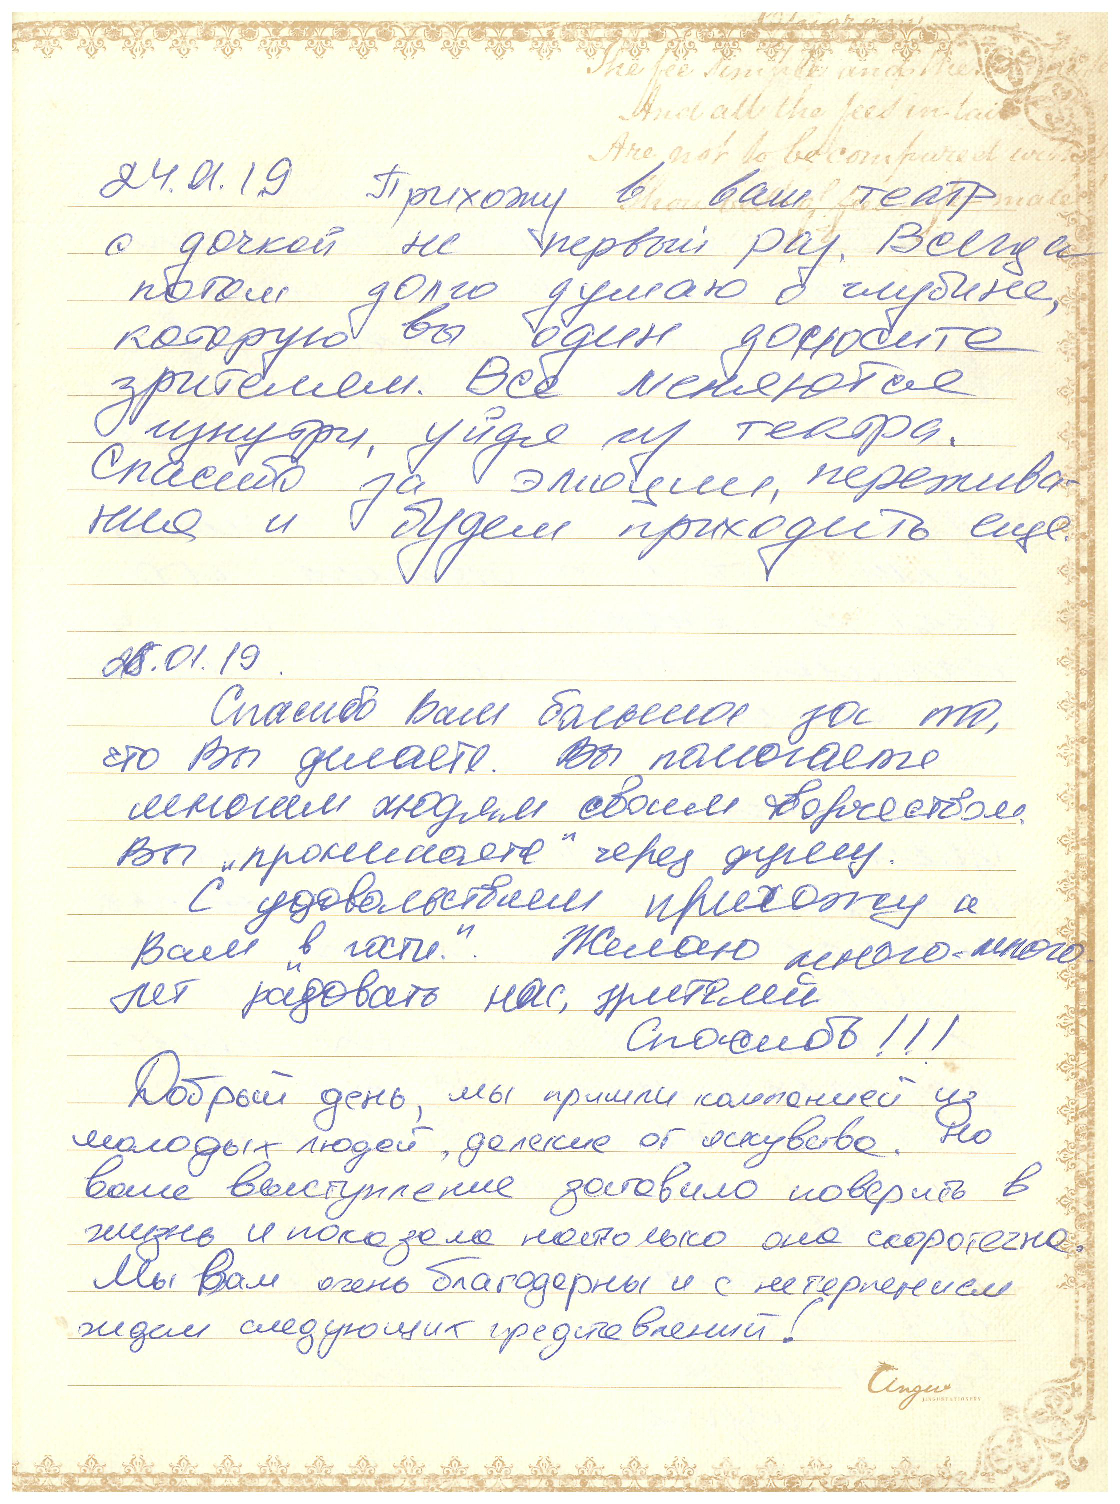 The fee simple and the
And all the fees in tail
Are not to be compared with
24.01.19 Прихожу в ваш театр
с дочкой не первый раз. Всегда
потом долго думаю о глубине,
которую вы один доносите
зрителям. Все меняются
изнутри, уйдя из театра.
Спасибо за эмоции, пережива-
ния и будем приходить еще.
25.01.19.
Спасибо Вам большое за то,
что Вы делаете. Вы помогаете
многим людям своим творчеством.
Вы „проникаете" через душу.
С удовольствием прихожу к
Вам „в гости". Желаю много-много
лет радовать нас, зрителей
Спасибо!!!
Добрый день, мы пришли компанией из
молодых людей, далекие от искувства. Но
ваше выступление заставило поверить в
жизнь и показало настолько она скоротечна.
Мы Вам очень благодарны и с нетерпением
ждем следующих представлений!